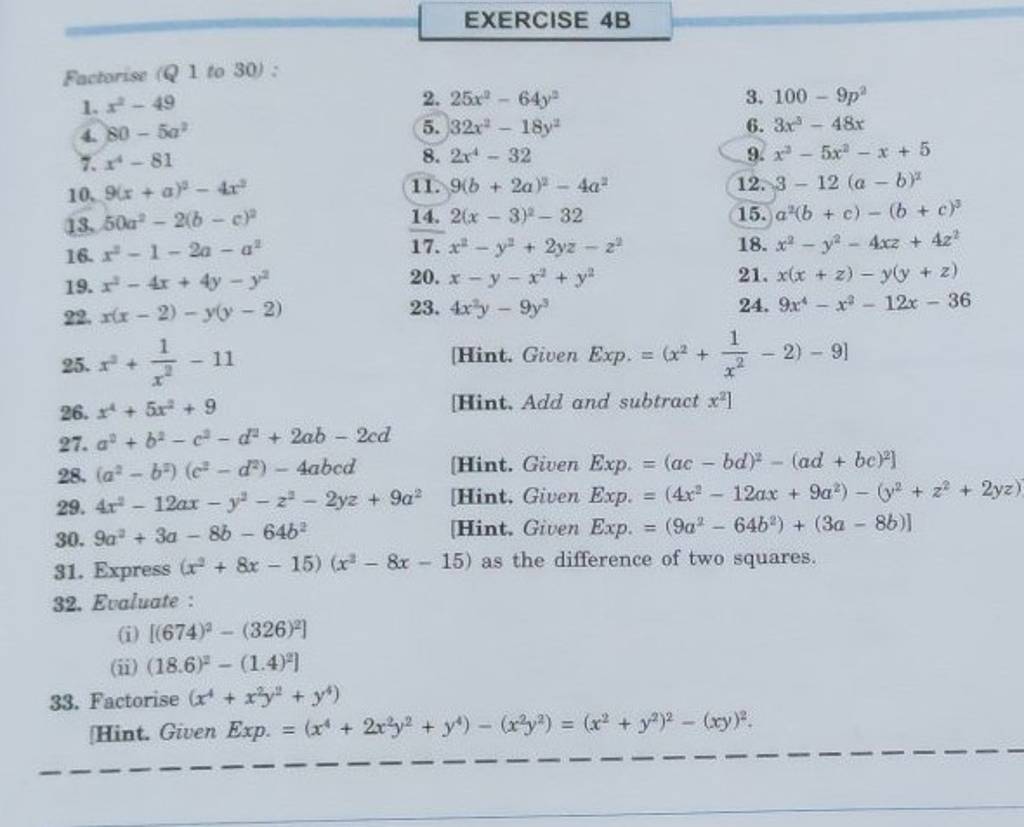 EXERCISE 4B
Factorise (Q 1 to 30) :
1. x² – 49 2. 25x² – 64y² 3. 100 – 9p²
4. 80 – 5a² 5. 32x² – 18y² 6. 3x³ – 48x
7. x⁴ – 81 8. 2x⁴ – 32 9. x³ – 5x² – x + 5
10. 9(x + a)² – 4x² 11. 9(b + 2a)² – 4a² 12. 3 – 12 (a – b)²
13. 50a² – 2(b – c)² 14. 2(x – 3)² – 32 15. a²(b + c) – (b + c)³
16. x² – 1 – 2a – a² 17. x² – y² + 2yz – z² 18. x² – y² – 4xz + 4z²
19. x² – 4x + 4y – y² 20. x – y – x² + y² 21. x(x + z) – y(y + z)
22. x(x – 2) – y(y – 2) 23. 4x²y – 9y³ 24. 9x⁴ – x² – 12x – 36
25. x² + 1/x² – 11 [Hint. Given Exp. = (x² + 1/x² – 2) – 9]
26. x⁴ + 5x² + 9 [Hint. Add and subtract x²]
27. a² + b² – c² – d² + 2ab – 2cd
28. (a² – b²) (c² – d²) – 4abcd [Hint. Given Exp. = (ac – bd)² – (ad + bc)²]
29. 4x² – 12ax – y² – z² – 2yz + 9a² [Hint. Given Exp. = (4x² – 12ax + 9a²) – (y² + z² + 2yz)]
30. 9a² + 3a – 8b – 64b² [Hint. Given Exp. = (9a² – 64b²) + (3a – 8b)]
31. Express (x² + 8x – 15) (x² – 8x – 15) as the difference of two squares.
32. Evaluate :
(i) [(674)² – (326)²]
(ii) (18.6)² – (1.4)²]
33. Factorise (x⁴ + x²y² + y⁴)
[Hint. Given Exp. = (x⁴ + 2x²y² + y⁴) – (x²y²) = (x² + y²)² – (xy)².